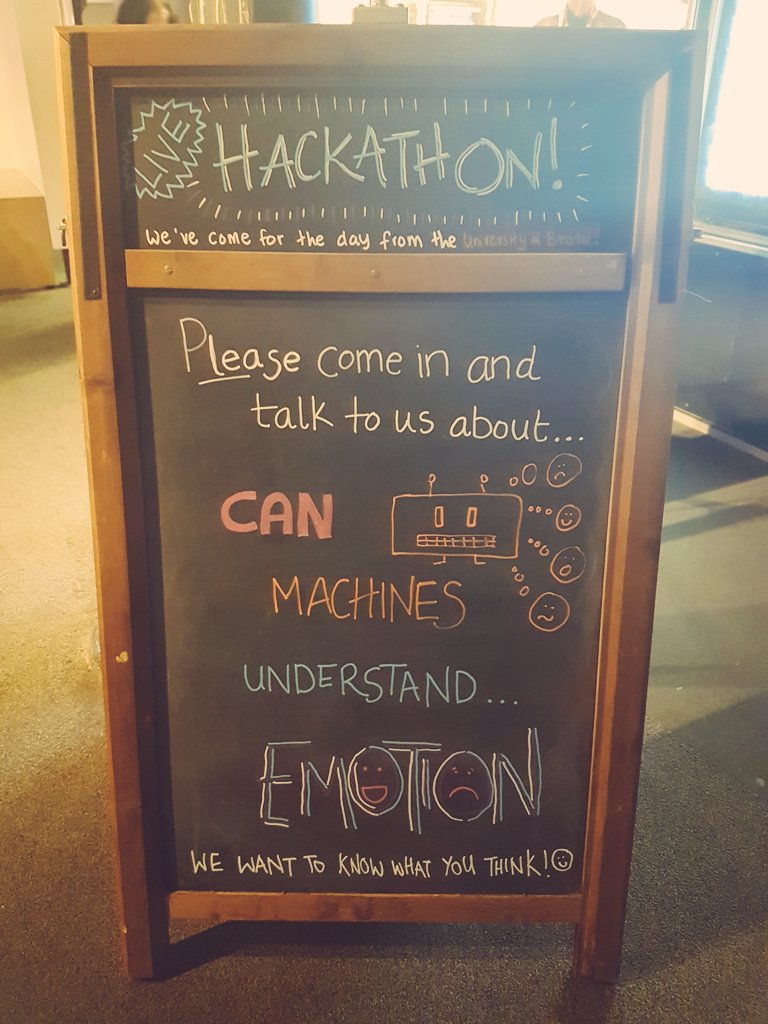 LIVE
HACKATHON!
We've come for the day from the University of Bristol!
Please come in and
talk to us about...
CAN
MACHINES
UNDERSTAND...
EMOTION
WE WANT TO KNOW WHAT YOU THINK!